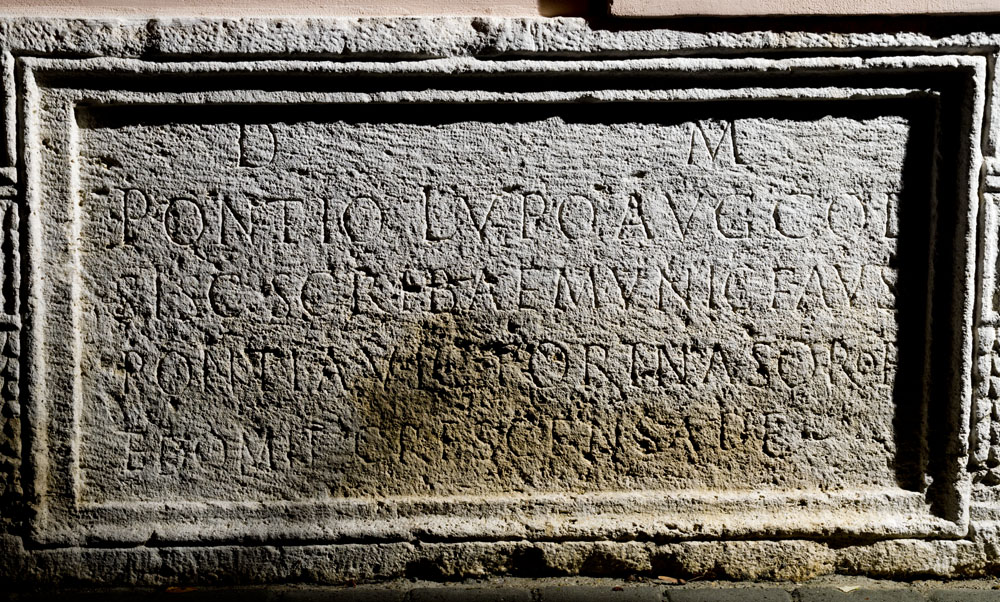 D M
PONTIO LVPO AVG COL
SISC SCRIBAE MVNIC FAVS
PONTIA VICTORINA SOROR
ET DOMIT CRESCENS